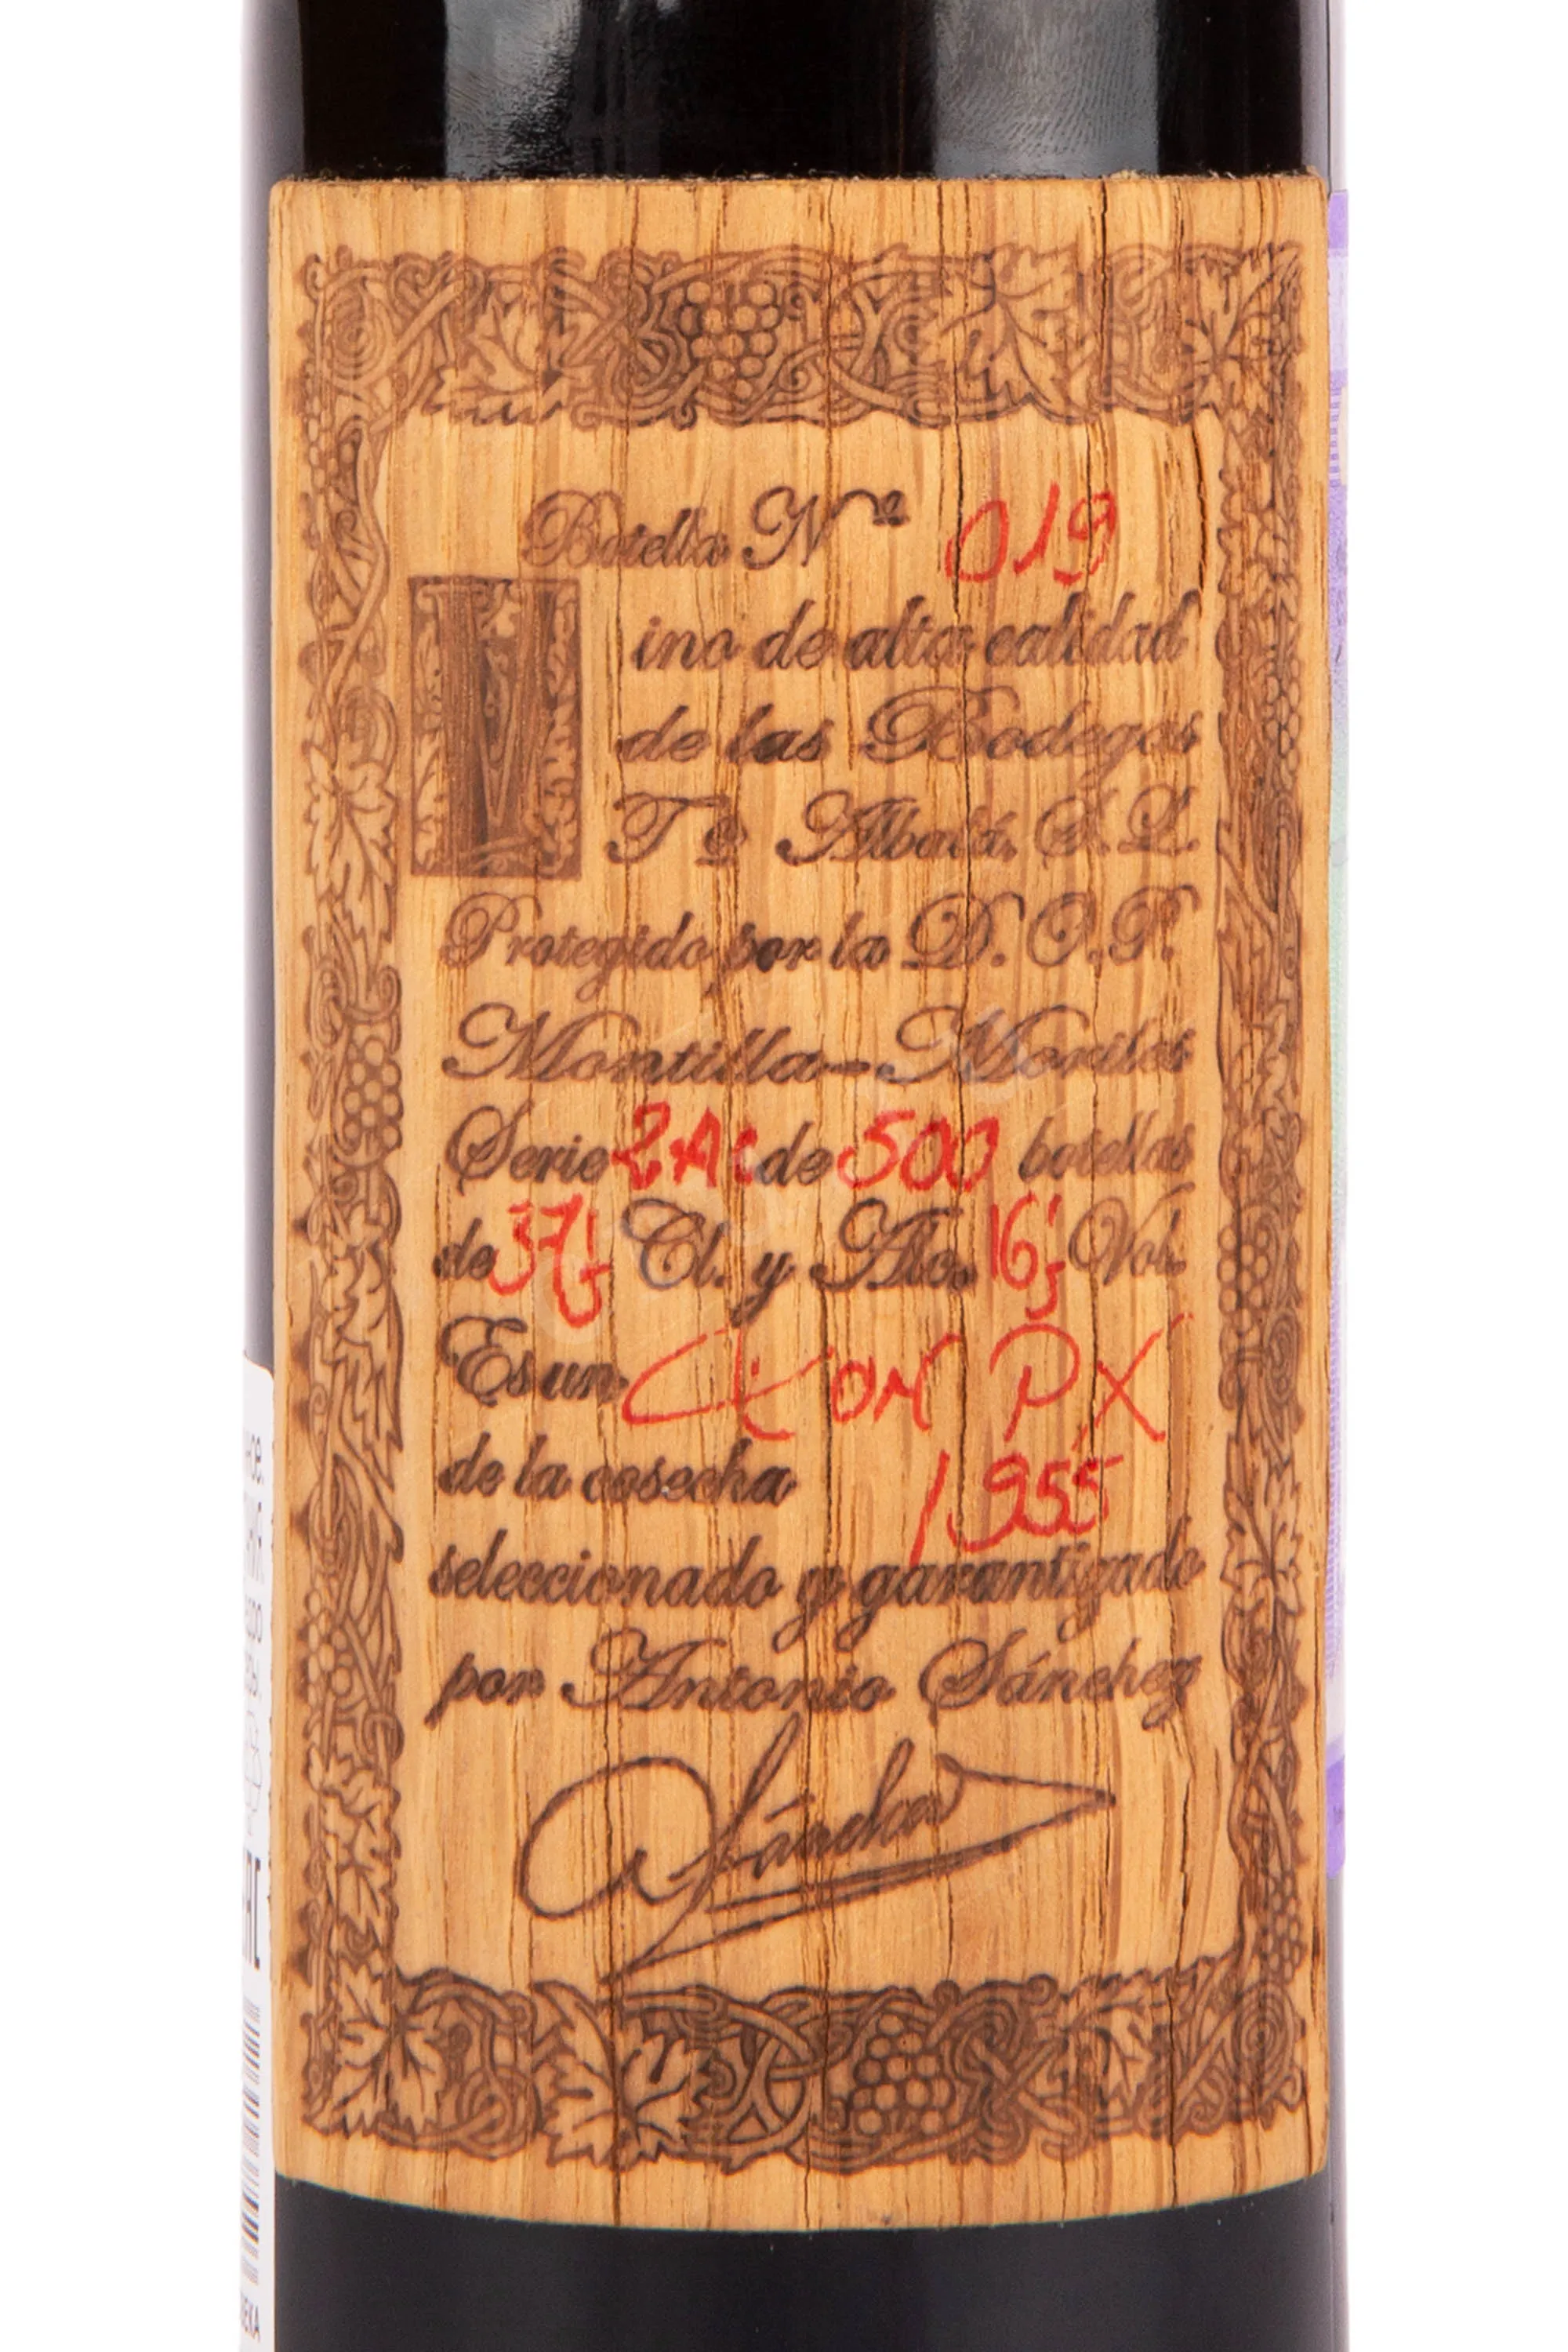 Botella Nº 019
Vino de alta calidad
de las Bodegas
Tº Albalá, S.L.
Protegido por la D.O.P.
Montilla-Moriles
Serie de 500 botellas
de 37,5 Cl. y Alc. 16,5 Vol.
Es un PX
de la cosecha 1955
seleccionado y garantizado
por Antonio Sánchez
Sánchez